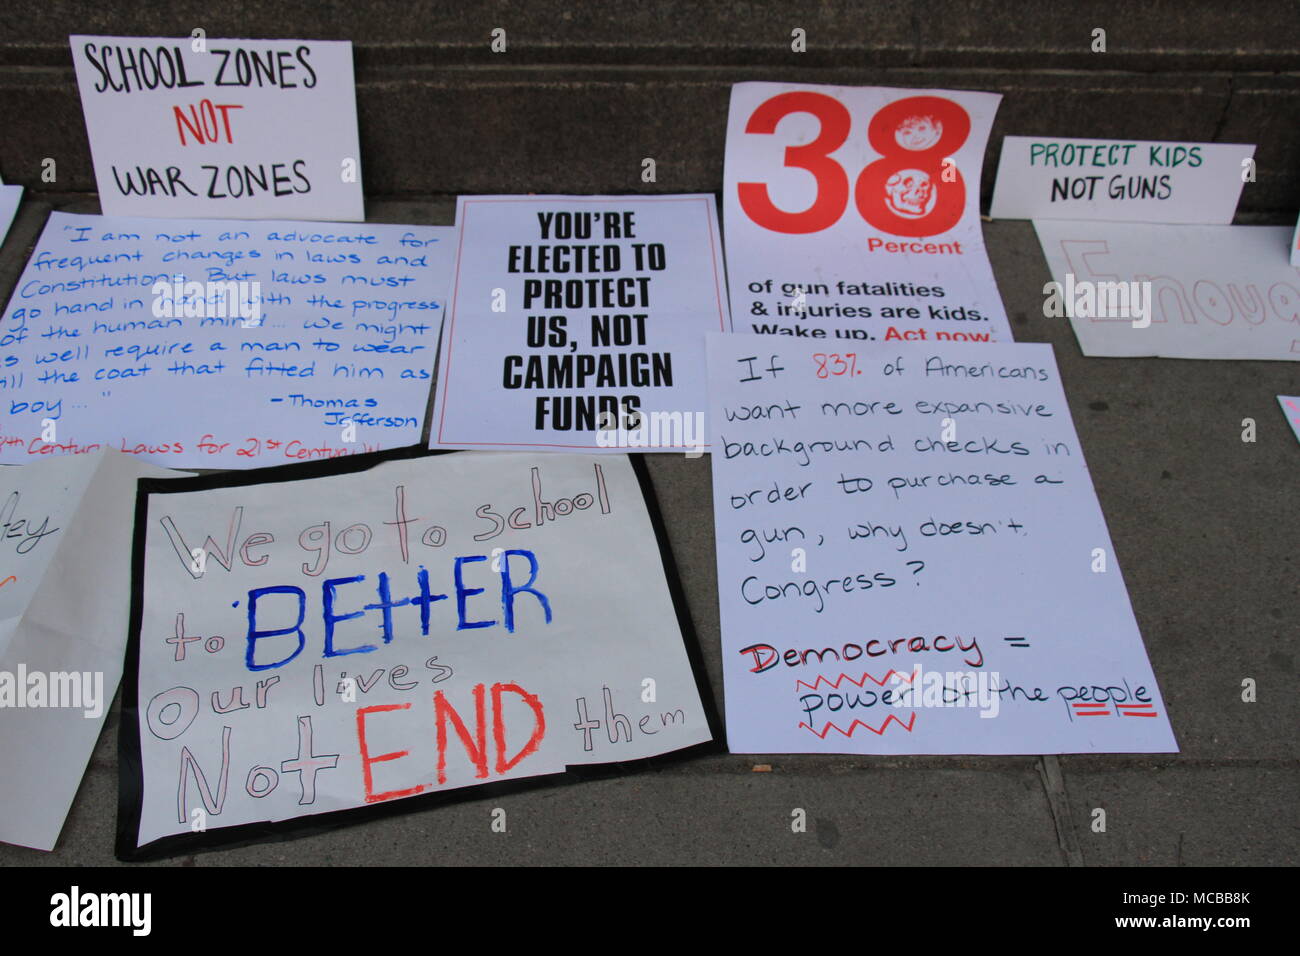 SCHOOL ZONES
NOT
WAR ZONES
"I am not an advocate for
frequent changes in laws and
Constitutions. But laws must
go hand in hand with the progress
of the human mind... we might
as well require a man to wear
still the coat that fitted him as
boy..."
- Thomas
Jefferson
Century Laws for 21st Century
YOU'RE
ELECTED TO
PROTECT
US, NOT
CAMPAIGN
FUNDS
38
Percent
of gun fatalities
& injuries are kids.
Wake up. Act now.
PROTECT KIDS
NOT GUNS
Enough
We go to school
to BEttER
Our lives
Not END them
If 83% of Americans
want more expansive
background checks in
order to purchase a
gun, why doesn't
Congress?
Democracy =
power of the people
alamy stock photo
MCBB8K
www.alamy.com